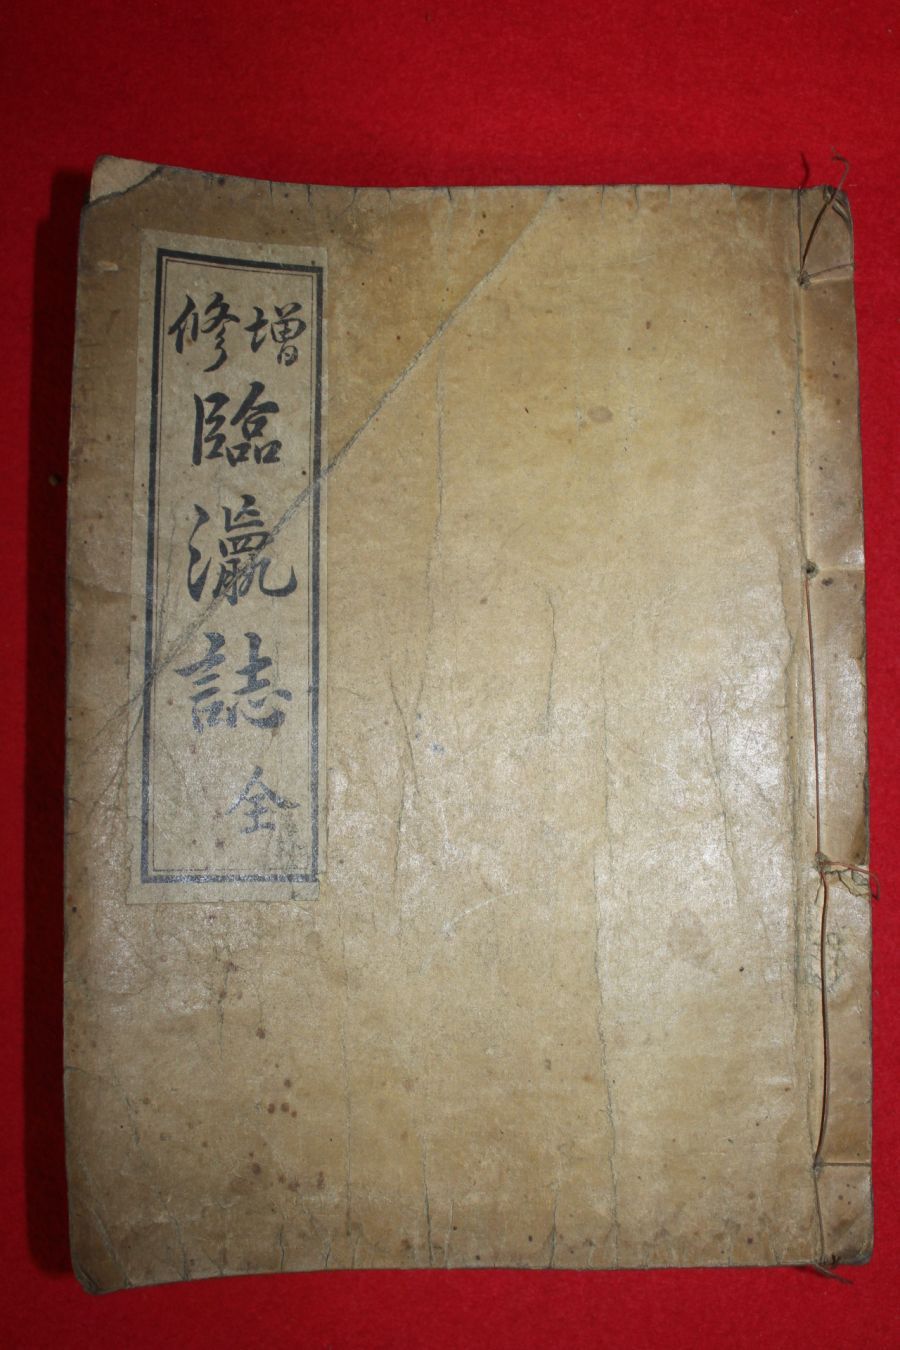 增修
臨瀛誌
全